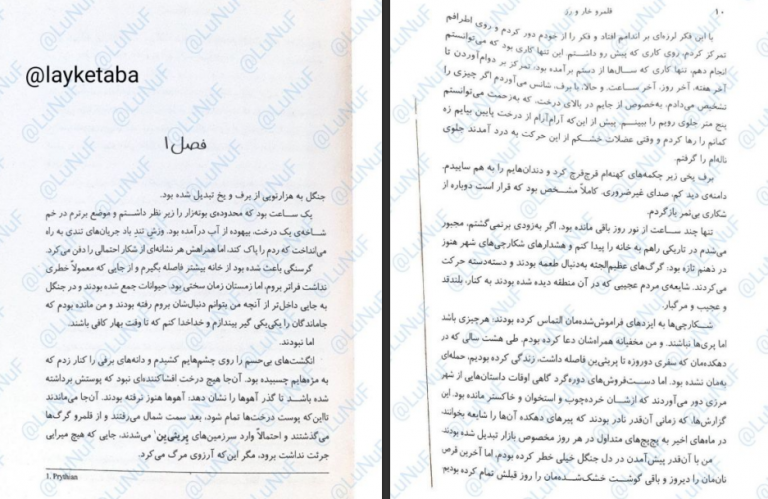 @layketaba
فصل ۱
جنگل به هزارتویی از برف و یخ تبدیل شده بود.
یک ساعت بود که محدوده‌ی بوته‌زار را زیر نظر داشتم و موضع برترم در خم
شاخه‌ی یک درخت، بیهوده از آب درآمده بود. وزش تند باد جریان‌های تندی به راه
می‌انداخت که ردم را پاک کند، اما همراهش هر نشانه‌ای از شکار احتمالی را دفن می‌کرد.
گرسنگی باعث شده بود از خانه بیشتر فاصله بگیرم و از جایی که معمولاً خطری
نداشت فراتر بروم، اما زمستان زمان سختی بود. حیوانات جمع شده بودند و در جنگل
به جایی داخل‌تر از آنجه من بتوانم دنبال‌شان بروم رفته بودند و من مانده بودم که
جاماندگان را یکی‌یکی گیر بیندازم و خداخدا کنم که تا وقت بهار کافی باشند.
اما نبودند.
انگشت‌های بی‌حسم را روی چشم‌هایم کشیدم و دانه‌های برفی را کنار زدم که
به مژه‌هایم چسبیده بود. آن‌جا هیچ درخت افشاکننده‌ای نبود که پوستش برداشته
شده باشد تا گذر آهوها را نشان دهد: آهوها هنوز نرفته بودند. آن‌جا می‌ماندند
تااین‌که پوست درخت‌ها تمام شود، بعد سمت شمال می‌رفتند و از قلمرو گرگ‌ها
می‌گذشتند و احتمالاً وارد سرزمین‌های پریتی‌ین¹ می‌شدند، جایی که هیچ میرایی
جرئت نداشت برود، مگر این‌که آرزوی مرگ می‌کرد.
1. Prythian
۱۰ قلمرو خار و رز
با این فکر لرزه‌ای بر اندامم افتاد و فکر را از خودم دور کردم و روی اطرافم
تمرکز کردم، روی کاری که پیش رو داشتم. این تنها کاری بود که می‌توانستم
انجام دهم، تنها کاری که سال‌ها از دستم برآمده بود، تمرکز بر دوام‌آوردن تا
آخر هفته، آخر روز، آخر ساعت. و حالا، با برف، شانس می‌آوردم اگر چیزی را
تشخیص می‌دادم، به‌خصوص از جایم در بالای درخت، که به‌زحمت می‌توانستم
پنج متر جلوی رویم را ببینم. پیش از این‌که آرام‌آرام از درخت پایین بیایم زه
کمانم را رها کردم و وقتی عضلات خشکم از این حرکت به درد آمدند جلوی
ناله‌ام را گرفتم.
برف یخی زیر چکمه‌های کهنه‌ام قرچ‌قرچ کرد و دندان‌هایم را به هم ساییدم.
دامنه‌ی دید کم، صدای غیرضروری. کاملاً مشخص بود که قرار است دوباره از
شکاری بی‌ثمر بازگردم.
تنها چند ساعت از نور روز باقی مانده بود. اگر به‌زودی برنمی‌گشتم، مجبور
می‌شدم در تاریکی راهم به خانه را پیدا کنم و هشدارهای شکارچی‌های شهر هنوز
در ذهنم تازه بود: گرگ‌های عظیم‌الجثه به‌دنبال طعمه بودند و دسته‌دسته حرکت
می‌کردند. شایعه‌ی مردم عجیبی که در آن منطقه دیده شده بودند به کنار، بلندقد
و عجیب و مرگبار.
شکارچی‌ها به ایزدهای فراموش‌شده‌مان التماس کرده بودند: هرچیزی باشد
اما پری‌ها نباشند. و من مخفیانه همراه‌شان دعا کرده بودم. طی هشت سالی که در
دهکده‌مان که سفری دوروزه تا پریتی‌ین فاصله داشت، زندگی کرده بودیم، حمله‌ای
به‌مان نشده بود. اما دست‌فروش‌های دوره‌گرد گاهی اوقات داستان‌هایی از شهر
مرزی دور می‌آوردند که ازشان خرده‌چوب و استخوان و خاکستر مانده بود. این
گزارش‌ها، که زمانی آن‌قدر نادر بودند که پیرهای دهکده آن‌ها را شایعه بخوانند،
در ماه‌های اخیر به پچ‌پچ‌های متداول در هر روز مخصوص بازار تبدیل شده بودند.
من با آن‌قدر پیش‌آمدن در دل جنگل خیلی خطر کرده بودم. اما آخرین قرص
نان‌مان را دیروز و باقی گوشت خشک‌شده‌مان را روز قبلش تمام کرده بودیم
@LuNuF